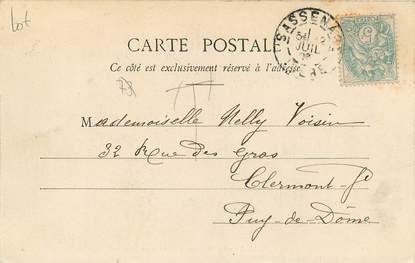 Lot
CARTE POSTALE
Ce côté est exclusivement réservé à l'adresse
SASSENAGE
JUIL
ISÈRE
Mademoiselle Nelly Voisin
32 Rue des Gras
Clermont-Fd
Puy-de-Dôme